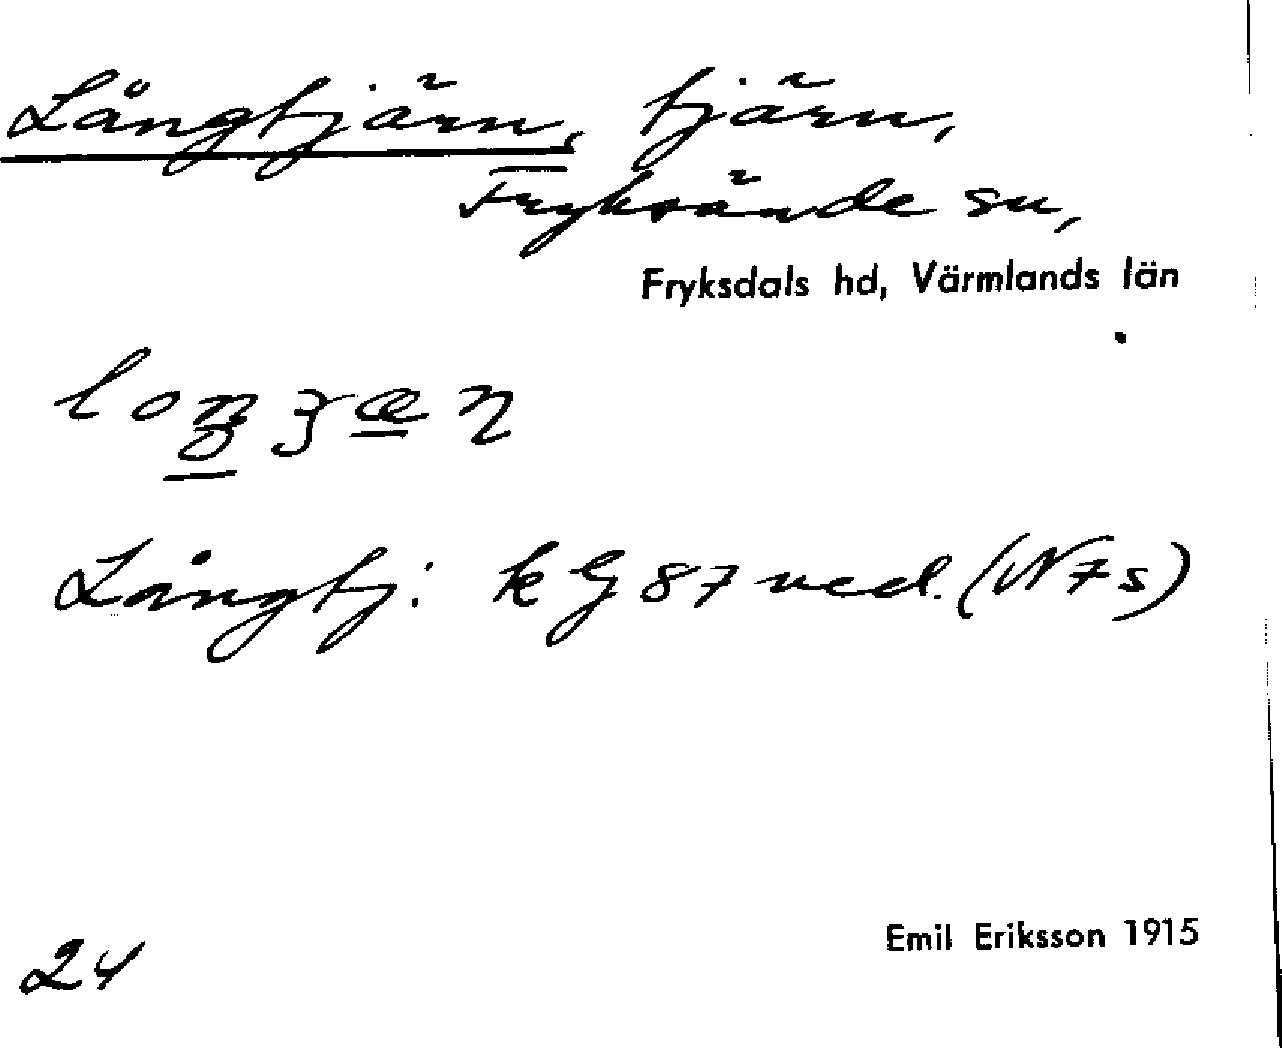 Långtjärn, tjärn,
Fryksände sn,
Fryksdals hd, Värmlands län
Långtj: k G 87 ned. (N 7 s)
Emil Eriksson 1915
24